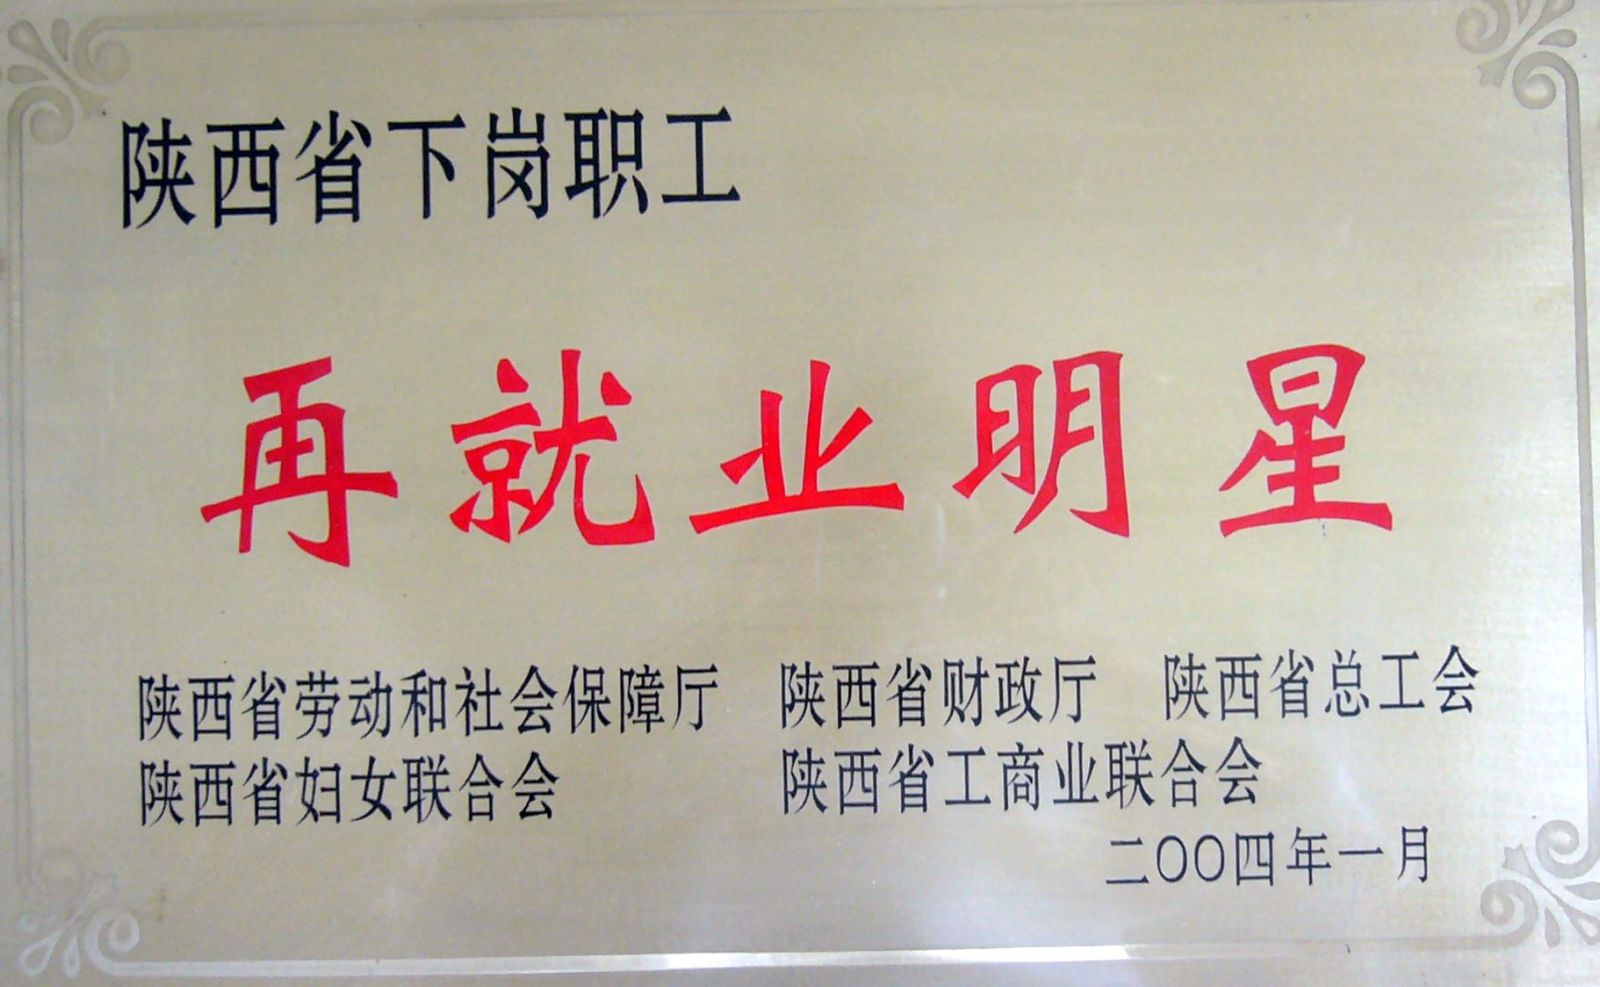 陕西省下岗职工
再就业明星
陕西省劳动和社会保障厅 陕西省财政厅 陕西省总工会
陕西省妇女联合会 陕西省工商业联合会
二〇〇四年一月